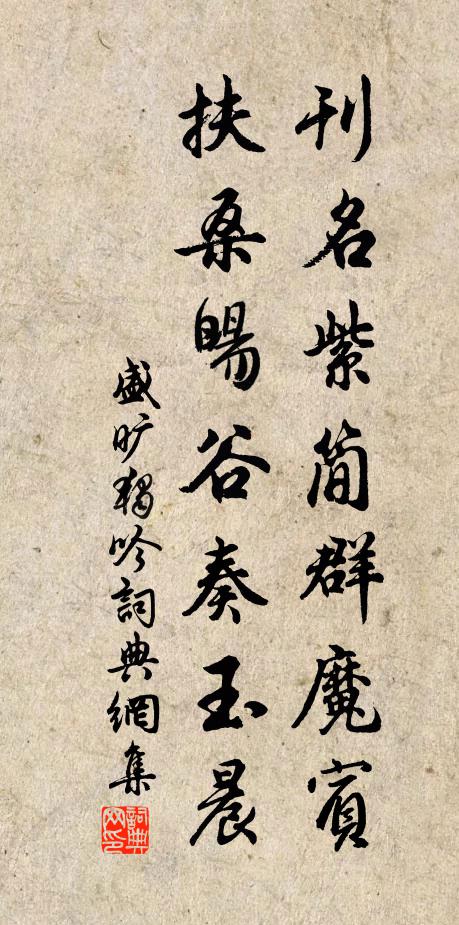 刊名紫简群魔賓
扶桑暘谷奏玉晨
盛旷獨吟詞典網集
詞典
网印